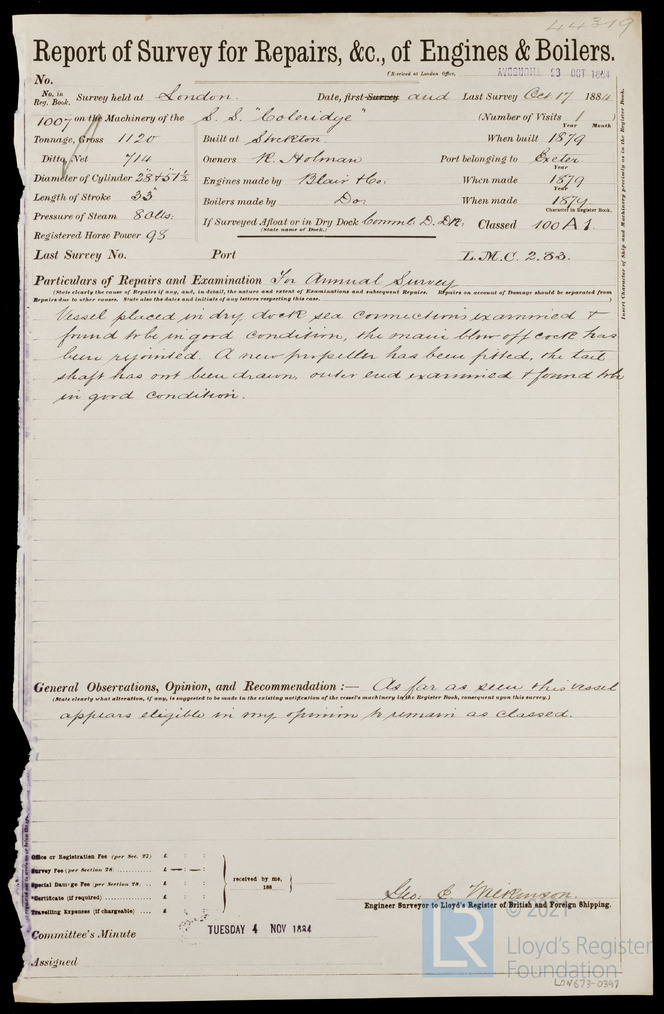 44319
Report of Survey for Repairs, &c., of Engines & Boilers.
(Received at London Office,
THURSDAY 23 OCT 1884
No.
No. in Reg. Book. Survey held at London. Date, first Survey and Last Survey Oct 17 1884
1007 on the Machinery of the S. S. "Coleridge" (Number of Visits 1 )
Year Month
Tonnage, Gross 1120 Built at Stockton. When built 1879
Ditto, Net 714 Owners R. Holman Port belonging to Exeter
Year
Diameter of Cylinder 28" & 51½ Engines made by Blair & Co. When made 1879
Year
Length of Stroke 33" Boilers made by Do. When made 1879
Character in Register Book.
Pressure of Steam 80 lbs. If Surveyed Afloat or in Dry Dock Comml. D. Dk. Classed 100 A 1.
(State name of Dock.)
Registered Horse Power 98
Last Survey No. Port L.M.C. 2.83.
Insert Character of Ship and Machinery precisely as in the Register Book.
Particulars of Repairs and Examination For Annual Survey
(State clearly the cause of Repairs if any, and, in detail, the nature and extent of Examinations and subsequent Repairs. Repairs on account of Damage should be separated from
Repairs due to other causes. State also the dates and initials of any letters respecting this case. )
Vessel placed in dry dock sea connections examined &
found to be in good condition, the main blow off cock has
been rejointed. A new propeller has been fitted, the tail
shaft has not been drawn, outer end examined & found to be
in good condition.
General Observations, Opinion, and Recommendation :— As far as seen this vessel
(State clearly what alteration, if any, is suggested to be made in the existing notification of the vessel's machinery in the Register Book, consequent upon this survey.)
appears eligible in my opinion to remain as classed.
Office or Registration Fee (per Sec. 27) £ : :
Survey Fee (per Section 28) ........... £ — : — :
Special Damage Fee (per Section 28) .. £ : :
*Certificate (if required) .......... £ : :
Travelling Expenses (if chargeable) .... £ : :
received by me,
188
Geo. E. Wilkinson.
Engineer Surveyor to Lloyd's Register of British and Foreign Shipping.
Committee's Minute TUESDAY 4 NOV 1884
Assigned
LR
© 2021
Lloyd's Register
Foundation
LON673-0397